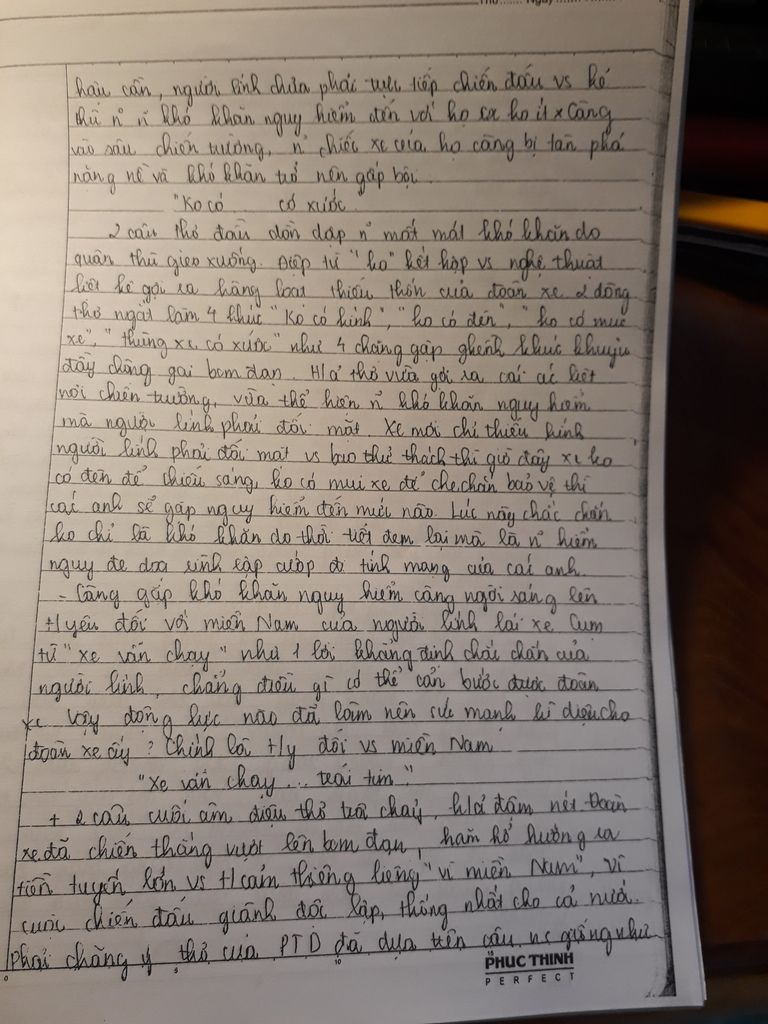 Thứ....... Ngày.......
hậu cần, người lính chưa phải trực tiếp chiến đấu vs kẻ
thù n~ n~ khó khăn nguy hiểm đến với họ cx ko ít x Càng
vào sâu chiến trường, n~ chiếc xe của họ càng bị tàn phá
nặng nề và khó khăn trở nên gấp bội.
"Ko có      có xước"
2 câu thơ đầu dồn dập n~ mất mát khó khăn do
quân thù gieo xuống. Điệp từ "ko" kết hợp vs nghệ thuật
liệt kê gợi ra hàng loạt thiếu thốn của đoàn xe 2 dòng
thơ ngắt làm 4 khúc "Ko có kính", "ko có đèn", "ko có mui
xe", "thùng xe có xước" như 4 chặng gập ghềnh khúc khuỷu
đầy chông gai bom đạn. H/ả thơ vừa gợi ra cái ác liệt
nơi chiến trường, vừa thể hiện n~ khó khăn nguy hiểm
mà người lính phải đối mặt. Xe mới chỉ thiếu kính
người lính phải đối mặt vs bao thử thách thì giờ đây xe ko
có đèn để chiếu sáng, ko có mui xe để che chắn bảo vệ thì
các anh sẽ gặp nguy hiểm đến mức nào. Lúc này chắc chắn
ko chỉ là khó khăn do thời tiết đem lại mà là n~ hiểm
nguy đe doạ rình rập cướp đi tính mạng của các anh.
- Càng gặp khó khăn nguy hiểm càng ngời sáng lên
t/yêu đối với miền Nam của người lính lái xe Cụm
từ "xe vẫn chạy" như 1 lời khẳng định chắc chắn của
người lính, chẳng điều gì có thể cản bước được đoàn
xe Vậy động lực nào đã làm nên sức mạnh kì diệu cho
đoàn xe ấy? Chính là t/y đối vs miền Nam
"Xe vẫn chạy ... trái tim"
+ 2 câu cuối âm điệu thơ trôi chảy, h/ả đậm nét Đoàn
xe đã chiến thắng vượt lên bom đạn, hăm hở hướng ra
tiền tuyến lớn vs t/cảm thiêng liêng "vì miền Nam", vì
cuộc chiến đấu giành độc lập, thống nhất cho cả nước.
Phải chăng ý thơ của PTD đã dựa trên câu ns giống như
PHUC THINH
PERFECT